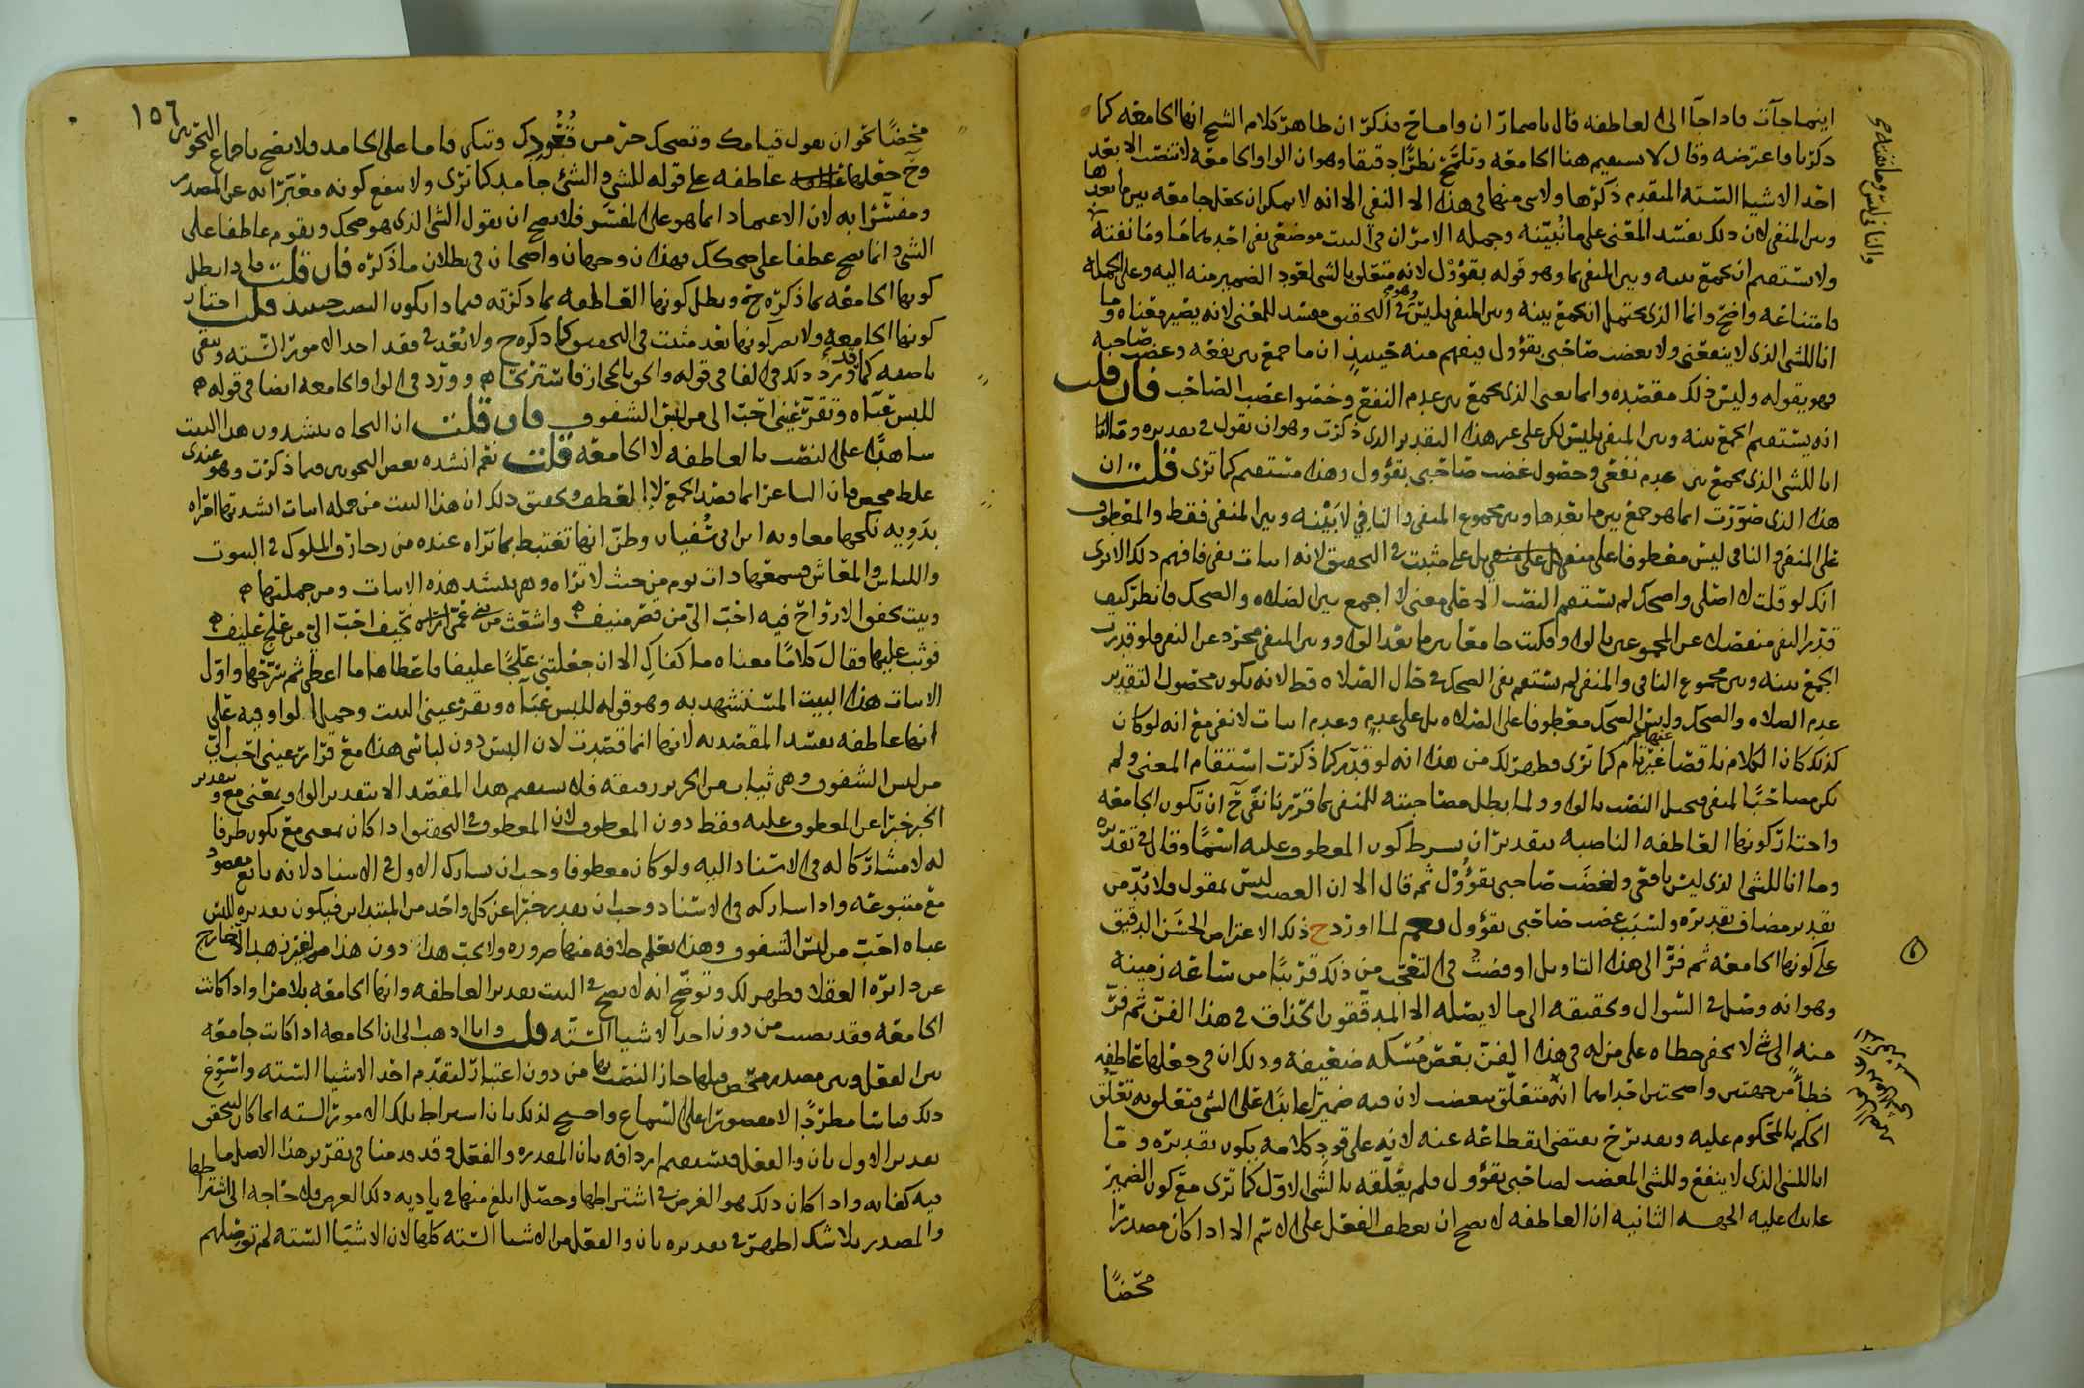 اينما جآت فاذا جآ الى العاطفه قال باضمار ان واما ح فذكر ان ظاهر كلام الشيخ انها الجامعه كما
ذكرنا واعترضه وقال لا يستقيم هنا الجامعه وتلمح نظرًا دقيقا وهو ان الواو الجامعه لا تنصب الا بعد
احد الاشيا السته المقدم ذكرها ولا شي منها في هذه الا النفي الا انه لا يمكن ان تجعل جامعه بين ما بعدها
وبين المنفي لان ذلك يفسد المعنى على ما نُبيّنه وجمله الامر ان في البيت موضعي نفي احدهما مَا ومَا نفته
ولا يستقيم ان تجمع بينه وبين المنفي بما وهو قوله بقؤول لانه متعلق بالشي لعود الضمير منه اليه وعلى الجمله
فامتناعه واضح وانما الذي يحتمل الجمع بينه وبين المنفي بليس وهو في التحقيق مفسد للمعنى لانه يصير معناه وما
انا للشي الذي لا ينفعني ولا يغضب صاحبي بقؤول فيفهم منه حينئذٍ ان ما جمع بين نفعه وغضب صاحبه
فهو يقوله وليس ذلك مقصده وانما يعني الذي يجمع بين عدم النفع وحضو اغضب الصاحب فان قلت
انه يستقيم الجمع بينه وبين المنفي بليس لكن على غير هذا التقدير الذي ذكرت وهو ان يقول في تقديره وما انا
انا للشي الذي يجمع بين عدم نفعي وحصول غضب صاحبي بقؤول وهذا مستقيم كما ترى قلت ان
هذا الذي صوّرت انما هو جمع بين ما بعدها وبين مجموع المنفي والنافي لا بَيْنه وبين المنفي فقط والمعطوف
على المنفي والنافي ليس معطوفا على منفي بل على مثبت في التحقيق لانه اثبات نفي فافهم ذلك الا ترى
انك لو قلت لا اصلي واضحك لم يستقم النصب الا على معنى لا اجمع بين الصلاه والضحك فانظر كيف
قدر النفي منفصلا عن المجموعين بالواو فكنت جامعا بين ما بعد الواو وبين المنفي مجرد عن النفي فلو قدرت
الجمع بينه وبين مجموع النافي والمنفي لم يستقم نفي الضحك في حال الصلاه قط لانه يكون محصول التقدير
عدم الصلاه والضحك وليس الضحك معطوفا على الصلاه بل على عدم وعدم اثبات لا نفي مع انه لو كان
كذلك كان الكلام ناقصا غير تام كما ترى فظهر لك من هذا انه لو قدّر كما ذكرت استقام المعنى ولم
يكن مصاحبًا لمنفي فيحمل النصب بالواو ولما بطل مصاحبته للمنفي بما قررنا نفي ح ان تكون الجامعه
واختار كونها العاطفه الناصبه بتقدير ان بشرط كون المعطوف عليه اسمًا وقال في تقديره
وما انا للشي الذي ليس نافعي ولغضب صاحبي بقؤُوْل ثم قال الا ان الغضب ليس بمقول فلا بدّ من
تقدير مضاف تقديره ولسبَب غضب صاحبي بقؤول نعم لما اورد ح ذلك الاعتراض الحسَن الدقيق
على كونها الجامعه ثم فرّ الى هذا التاويل اوقعنى في التعجب من ذلك قريبًا من ساعه زمنيه
وهو انه وصل في السوال وتحقيقه الى ما لا يصله الا المدققون الحذاق في هذا الفن ثم فرّ
منه الى شي لا يخفى خطاه على من له في هذا الفن بعض مُسْكه ضعيفه وذلك ان في جعلها عاطفه
خطأً من جهتين واضحتين احداهما انه متعلق بيغضب لان فيه ضميرا عايدًا على الشي فتعلق به تعلّق
الحكم بالمحكوم عليه وتقدير ح يقتضي انقطاعه عنه لانه على قود كلامه يكون تقديره وما
انا للشي الذي لا ينفع وللشي المغضب لصاحبي بقؤول فلم يعلّقه بالشي الاوّل كما ترى مع كون الضمير
عايدا عليه الجهه الثانيه ان العاطفه لا يصح ان يعطف الفعل على الاسم الا اذا كان مصدرًا
محْضًا
١٥٦
محْضًا نحو ان يقول قيامك وتضحك خير من قُعُودِك وتبكي فاما على الجامد فلا يصح باجماع النحويين
وح جعلها عاطفه على قوله للشي والشي جامد كما ترى ولا ينفع كونه معبّرا به عن المصدر
ومفسّرا به لان الاعتماد انما هو على المفسر فلا يصح ان يقول الشي الذي هو ضحك ويقوم عاطفا على
الشي وانما يصح عطفا على ضحك فهذان وجهان واضحان في بطلان ما ذكره فان قلت فاذا بطل
كونها الجامعه بما ذكره ح وبطل كونها العاطفه بما ذكرته فبماذا يكون النصب حينئذ قلت اختار
كونها الجامعه ولا يضر كونها بعد مثبت في التحقيق كما ذكره ح ولا بُعد في فقد احد الامور السته وتبقى
ناصبه كما قد ورد ذلك في الفا في قوله والحق بالحجاز فاستريحا ه وورد في الواو الجامعه ايضا في قوله ه
للبس عبَاه وتقرّ عَيني احَبّ الى من لبس الشفوف فان قلت ان النحاه ينشدون هذا البيت
شاهدًا على النصب بالعاطفه لا الجامعه قلت نعم انشده بعض النحويين فيما ذكرت وهو عندي
غلط محض فان الشاعر انما قصد الجمع لا العطف وتحقيق ذلك ان هذا البيت من جمله ابيات انشدتها امراه
بدَوِيه نكحها معاويه ابن ابي سُفيان وظنّ انها تغتبط بما تراه عنده من رخارف الملوك في البيوت
واللباس والمعاش فسمعها ذات يوم من حيث لا تراه وهي تنشد هذه الابيات ومن جملتها ه
وبيت تخفق الارواح فيه احَبّ اليّ من قصر منيف ه واشعث من بني عمّي نحيف احَبّ اليّ من علج عليف ه
فوثب عليها فقال كَلامًا معناه ما كفاكِ الا ان جعلتني علجًا عليفا فاعطاها ما اعطى ثم سَرّحها واوّل
الابيات هذا البيت المستشهد به وهو قوله للبس عبَاه وتقرّ عيني البيت وحمل الواو فيه على
انها عاطفه يفسد المقصد به لانها انما قصدت لان البس دون لباسي هذا مع قرار عيني احَب اليّ
من لبس الشفوف وهي ثياب من الحرير رقيقه فلا يستقيم هذا المقصد الا بتقدير الواو بمعنى مع وتقدير
الخبر خبرًا عن المعطوف عليه فقط دون المعطوف لان المعطوف في التحقيق اذا كان بمعنى مع يكون ظرفا
له لا مشاركا له في الاسناد اليه ولو كان معطوفا وجب ان يشارك الاول في الاسناد لانه تابع مقصود
مع متبوعه واذا شاركه في الاسناد وجب ان تقدير خبرًا عن كل واحد من المبتداين فيكون تقديره للبس
عباه احَبّ من لبس الشفوف وهذا يعلم خلافه منها ضروره ولا يحب هذا دون هذا من لغيرنا هذا الا خارج
عن دايرة العقلا فظهر لك وتوضّح انه لا يصح في البيت تقدير العاطفه وانها الجامعه بلا مرا واذا كانت
الجامعه فقد نصبت من دون احد الاشيا السته قلت وانا اذهب الى ان الجامعه اذا كانت جامعه
بين الفعل وبين مصدر متمحض قبلها جاز النصب بها من دون اعتبار لتقدّم احَد الاشيا السته واسَوّغ
ذلك قياسًا مطردًا لا مقصورا على السماع واحتج لذلك بان اشتراط تلك الامور السته انما كان لتحقق
تقدير الاول بان والفعل فيستقيم ارادافه بان المقدره والفعل وقد قدمنا في تقرير هذا الاصل ما
فيه كفايه واذا كان ذلك هو الغرض في اشتراطها وحصل ابلغ منها في تاديه ذلك الغرض فلا حاجه الى اشتراطها
والمصدر بلا شك اظهر في تقديره بان والفعل من الاشيا السته كلها لان الاشيا السته لم توصلهم
والثاني ليس وما نفته ح